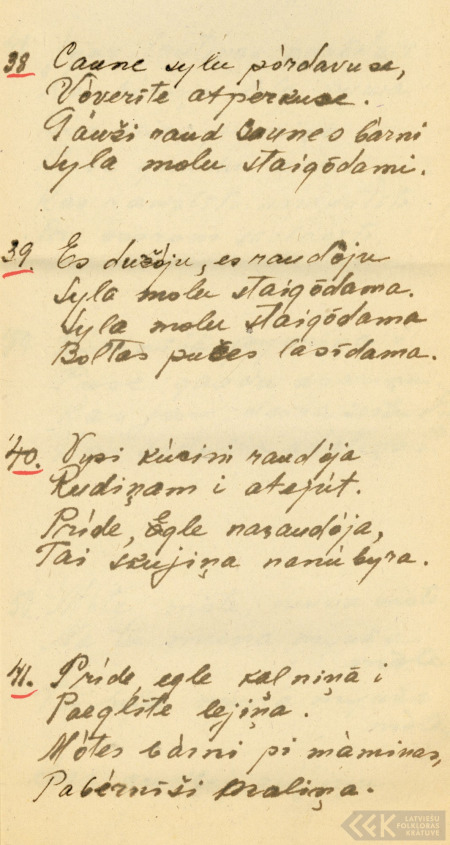 38 Caune sylu pórdavuse,
Vóverīte atpèrkuse.
Gáuži raud Caunes bàrni
Syla molu staigōdami.
39. Es dusóju, es raudôju
Syla molu staigōdama.
Syla molu staigōdama
Boltas pučes lasīdama.
40. Vysi kúcini raudója
Rudiņam i atejút.
Príde, Egle naraudója,
Tai skujiņa nanúbyra.
41. Príde, egle kalniņā i
Paeglīte lejiņa.
Mótes bárni pi màminas,
Pabérníši maliņa.
LATVIEŠU
FOLKLORAS
KRĀTUVE